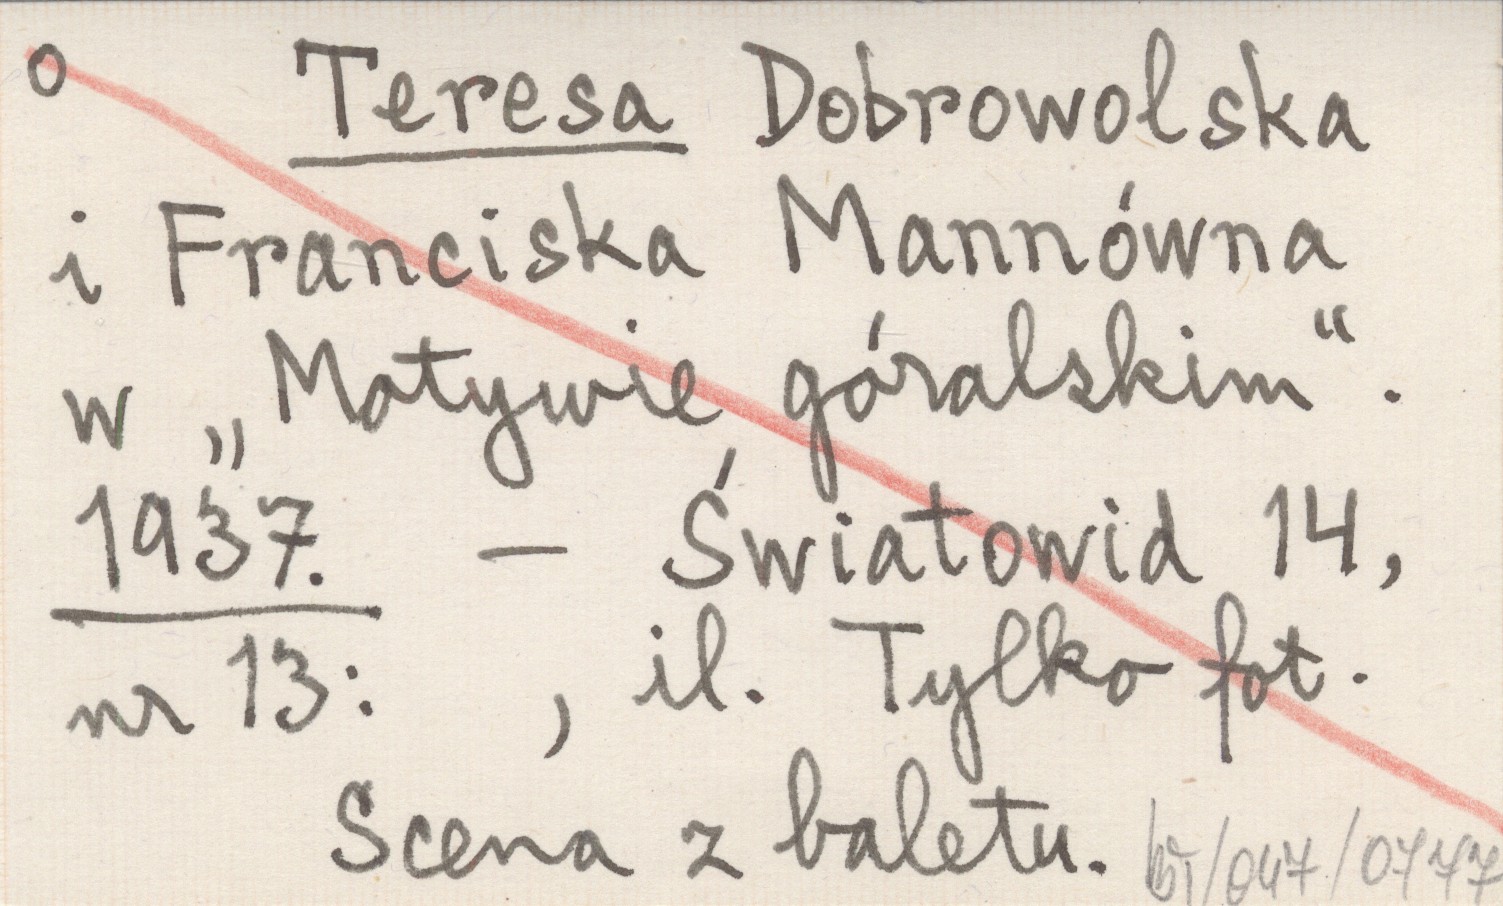 o Teresa Dobrowolska
i Franciska Mannówna
w „Motywie góralskim“.
1937. — Światowid 14,
nr 13: , il. Tylko fot.
Scena z baletu.
/047/0777